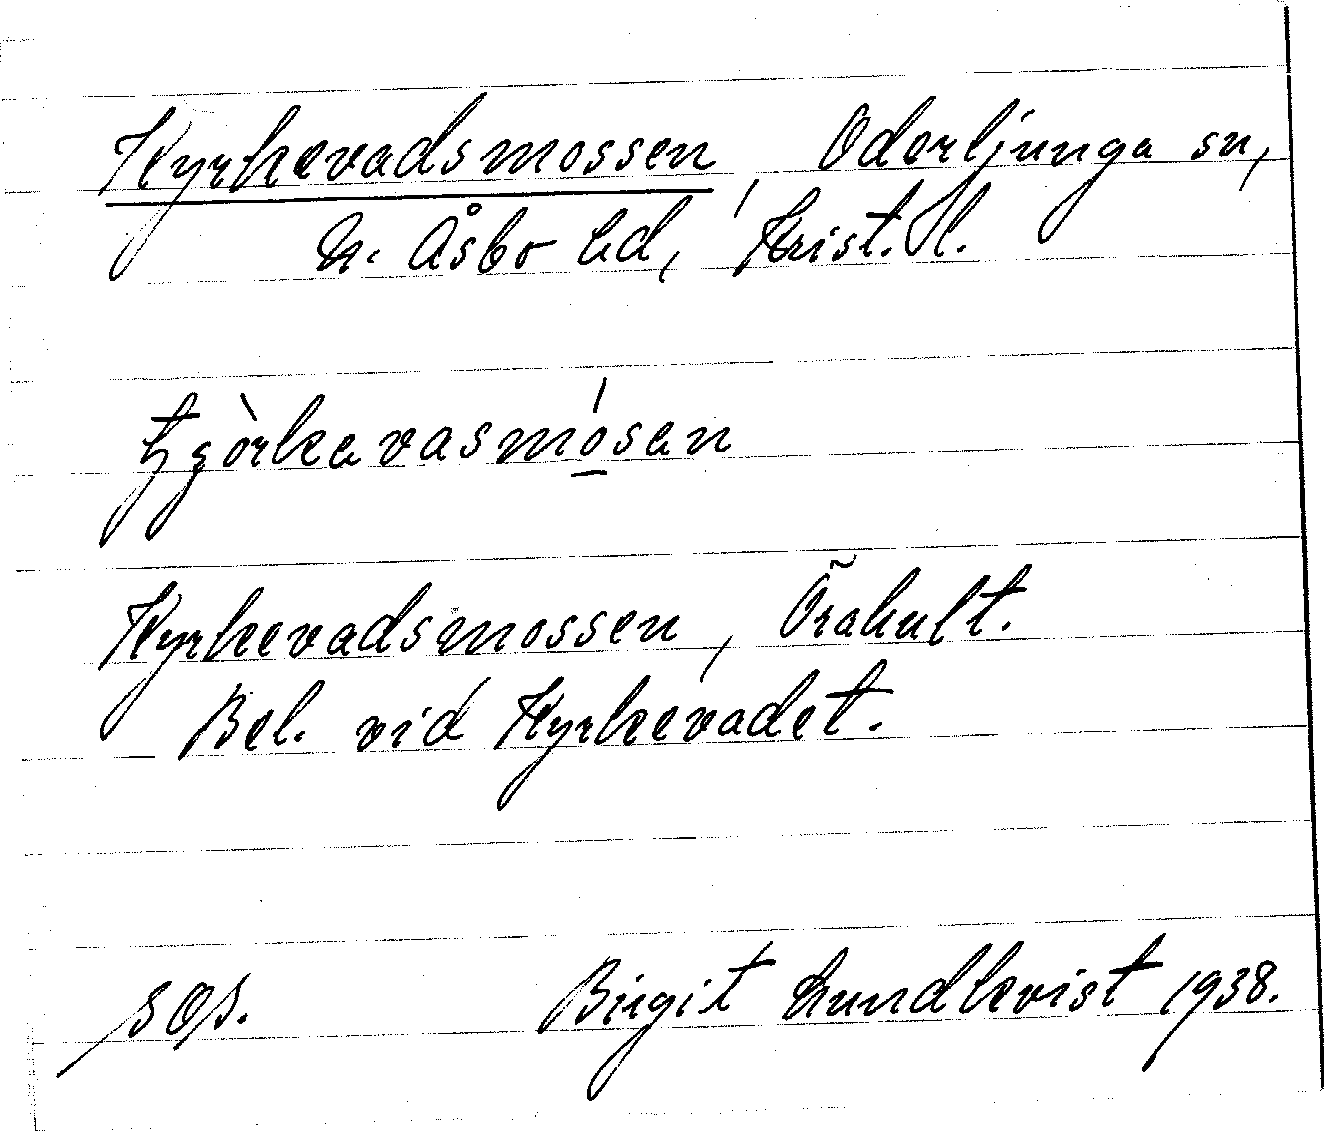 Kyrkevadsmossen, Oderljunga sn,
N. Åsbo hd, Krist. l.
Kyrkevadsmossen, Örahult.
Bel. vid Kyrkevadet.
Birgit Lundkvist 1938.